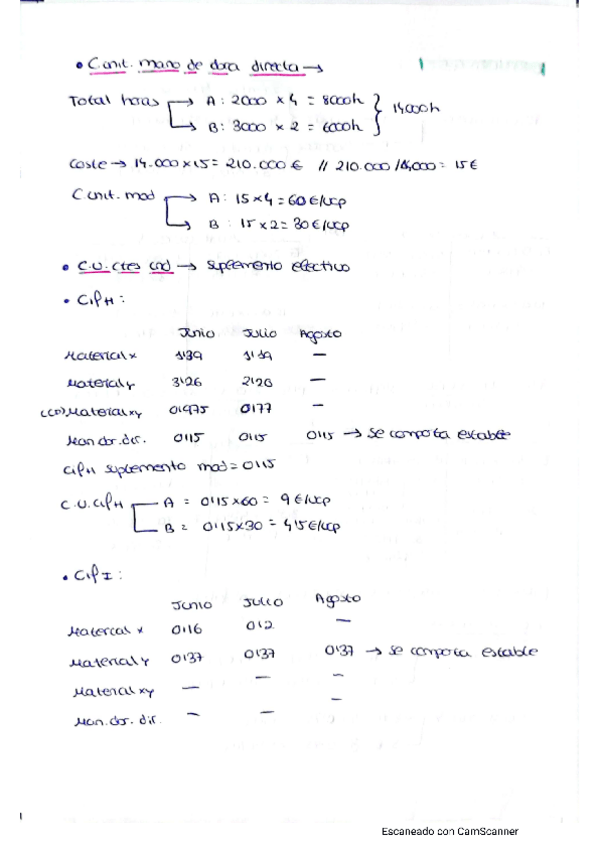 • C.unit. mano de obra directa →
Total horas → A: 2000 x 4 = 8000h } 14000h
→ B: 3000 x 2 = 6000h
Coste → 14.000x15 = 210.000 € // 210.000/14,000 = 15 €
C unit. mod → A: 15 x 4 = 60 €/ucp
→ B: 15 x 2 = 30 €/ucp
• C.U. ctes ind → suplemento efectivo
• Cif H:
Junio Julio Agosto
Material x 1'39 1'19 —
Material y 3'26 2'20 —
Material xy 0'1475 0'177 —
Man.obr.dir. 0'15 0'15 0'15 → se comporta estable
Cif H suplemento mod = 0'15
C.U. Cif H A = 0'15x60 = 9 €/ucp
B = 0'15x30 = 4'5 €/ucp
• Cif I:
Junio Julio Agosto
Material x 0'16 0'2 —
Material y 0'37 0'37 0'37 → se comporta estable
Material xy — — —
Man.obr.dir. — — —
Escaneado con CamScanner